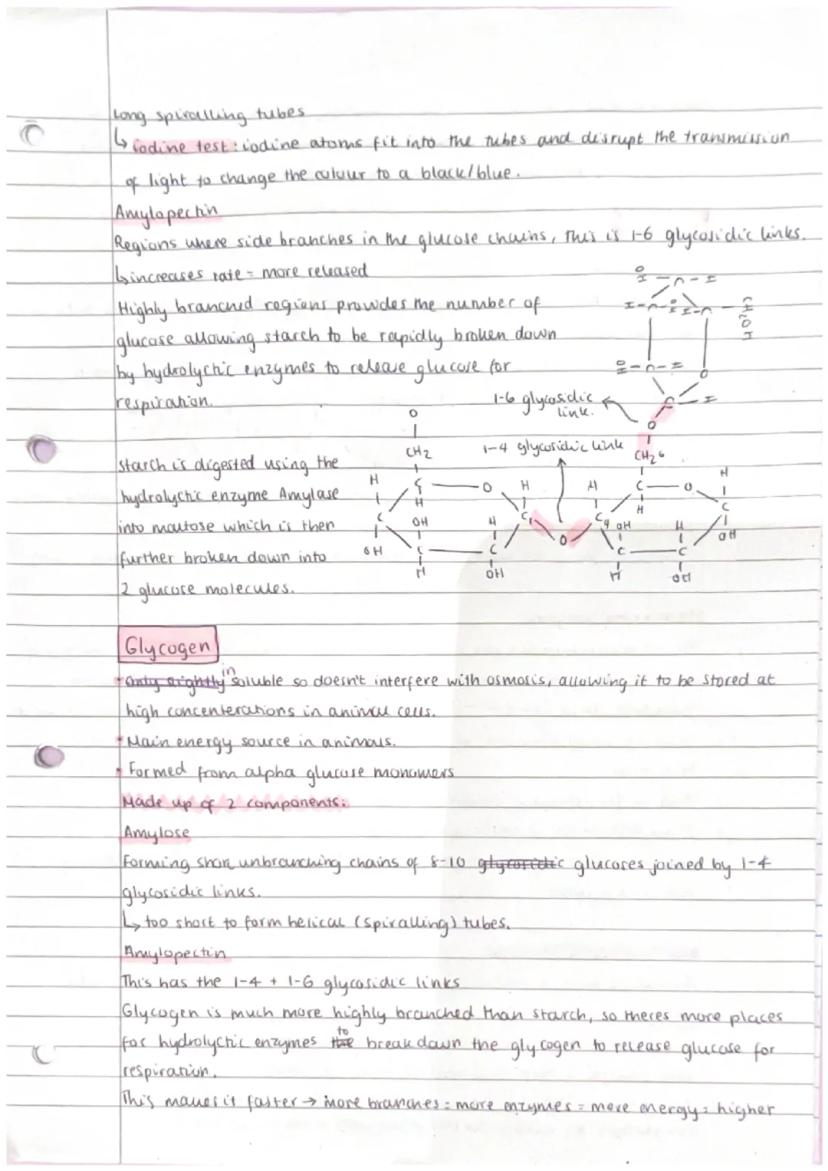 Long spiralling tubes
↳ iodine test: iodine atoms fit into the tubes and disrupt the transmission
of light to change the colour to a black/blue.
Amylopectin
Regions where side branches in the glucose chains, this is 1-6 glycosidic links.
↳ increases rate = more released
Highly branched regions provides the number of
glucose allowing starch to be rapidly broken down
by hydrolytic enzymes to release glucose for
respiration.
1-6 glycosidic
link.
1-4 glycosidic link
starch is digested using the
hydrolytic enzyme Amylase
into maltose which is then
further broken down into
2 glucose molecules.
O
CH2
H C O H
H
C OH H C1
OH C C
H OH
O
H C O H
C4 OH H C
H C C OH
H OH
CH2 6
O
Glycogen
only slightly insoluble so doesn't interfere with osmosis, allowing it to be stored at
high concenterations in animal cells.
Main energy source in animals.
Formed from alpha glucose monomers
Made up of 2 components:
Amylose
Forming short unbranching chains of 8-10 glucoses joined by 1-4
glycosidic links.
↳ too short to form helical (spiralling) tubes.
Amylopectin
This has the 1-4 + 1-6 glycosidic links
Glycogen is much more highly branched than starch, so theres more places
for hydrolytic enzymes to break down the glycogen to release glucose for
respiration.
This makes it faster → more branches = more enzymes = more energy = higher